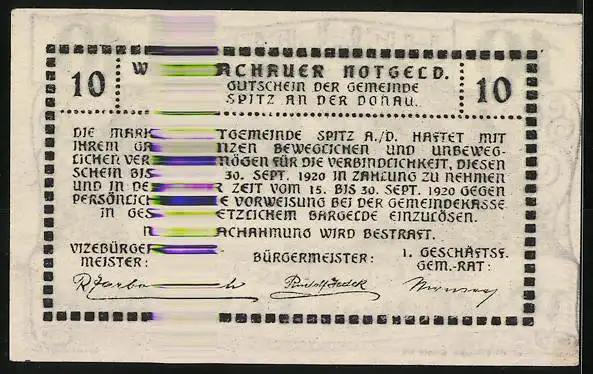 10 W ACHAUER NOTGELD. 10
GUTSCHEIN DER GEMEINDE
SPITZ AN DER DONAU.
DIE MARK TGEMEINDE SPITZ A./D. HAFTET MIT
IHREM GA NZEN BEWEGLICHEN UND UNBEWEG-
LICHEN VER MÖGEN FÜR DIE VERBINDLICHKEIT, DIESEN
SCHEIN BIS 30. SEPT. 1920 IN ZAHLUNG ZU NEHMEN
UND IN DE R ZEIT VOM 15. BIS 30. SEPT. 1920 GEGEN
PERSÖNLICH E VORWEISUNG BEI DER GEMEINDEKASSE
IN GES ETZLICHEM BARGELDE EINZULÖSEN.
N ACHAHMUNG WIRD BESTRAFT.
VIZEBÜRGER
MEISTER: BÜRGERMEISTER: 1. GESCHÄFTSF.
GEM.-RAT: